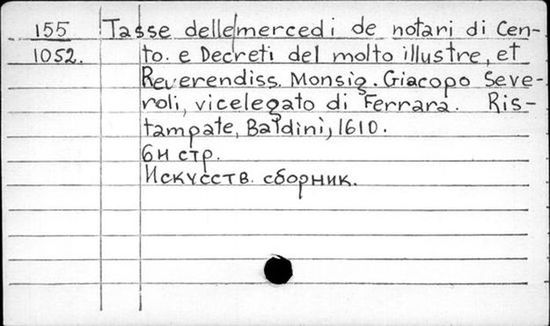 155 Tasse delle mercedi de notari di Cen-
1052. to. e Decreti del molto illustre, et
Reverendiss. Monsig. Giacopo Seve-
roli, vicelegato di Ferrara. Ris-
tampate, Baldini, 1610.
6н стр.
Искусств. сборник.